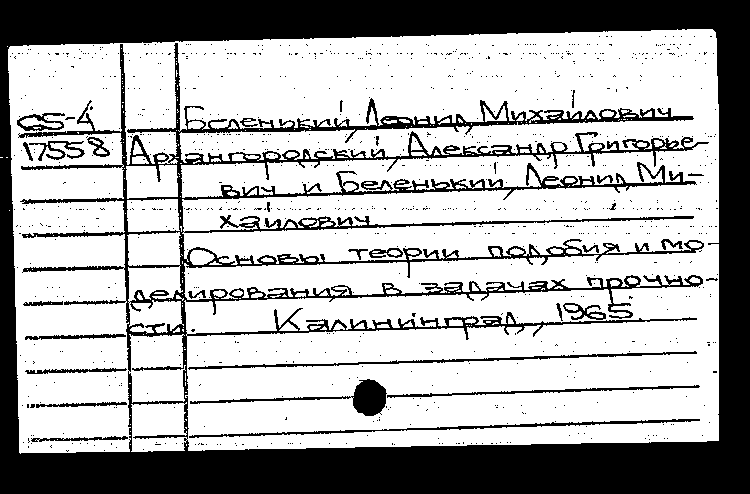 С5-4 Беленький, Леонид Михайлович
17558 Архангородский, Александр Григорье-
вич и Беленький, Леонид Ми-
хайлович.
Основы теории подобия и мо-
делирования в задачах прочно-
сти. Калининград, 1965.